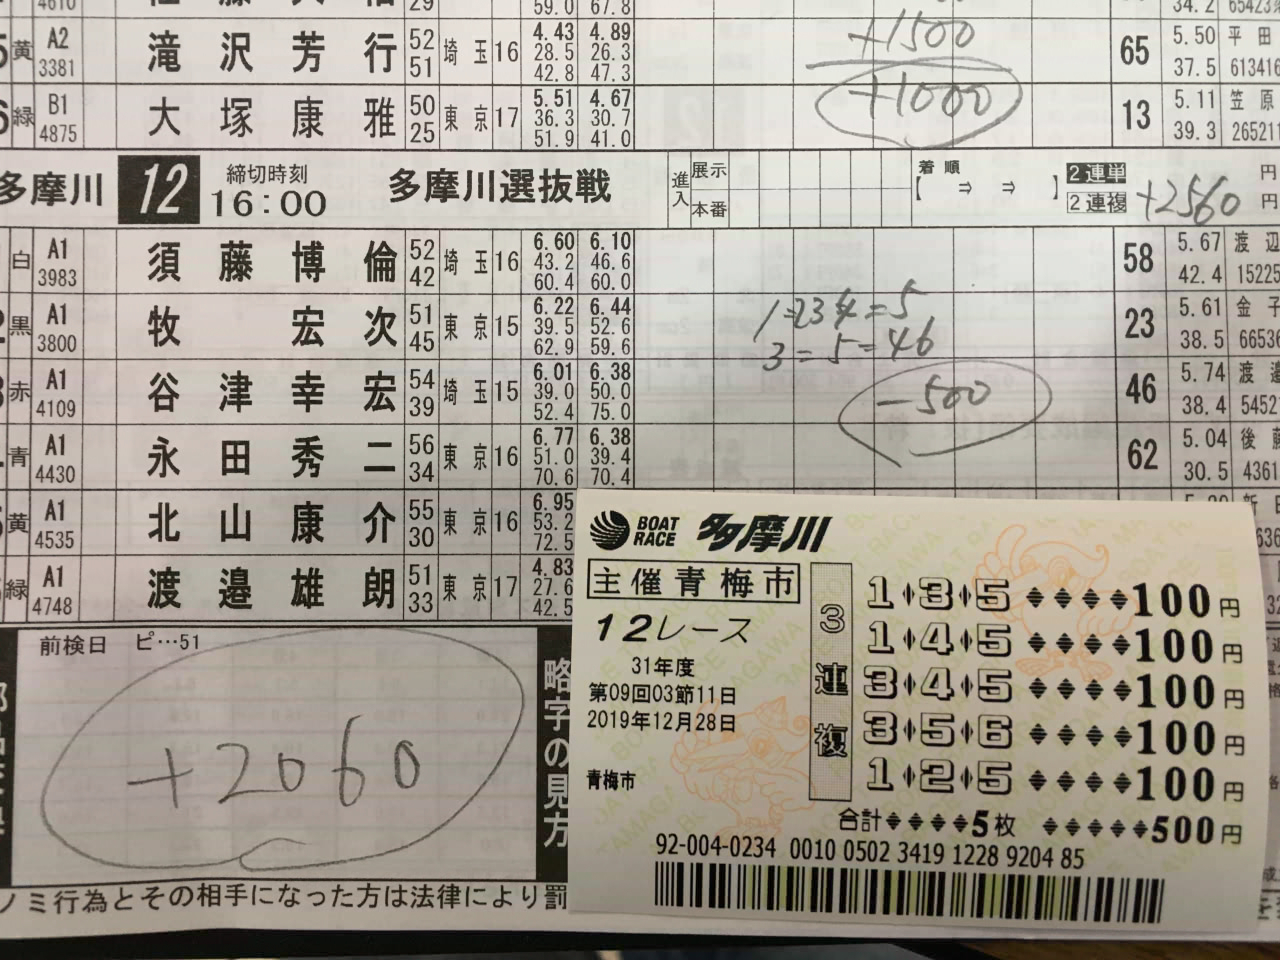 4610
29
59.0 67.8
34.2 65423
5 黄 A2 3381 滝沢芳行 52 51 埼玉 16 4.43 4.89 28.5 26.3 42.8 47.3
+1500
65 5.50 平田 37.5 613416
6 緑 B1 4875 大塚康雅 50 25 東京 17 5.51 4.67 36.3 30.7 51.9 41.0
+1000
13 5.11 笠原 39.3 265211
多摩川 12 締切時刻 16:00 多摩川選抜戦 進入 展示 本番 着順 【 ⇒ ⇒ 】 2連単 円 2連複 円
+2560
白 A1 3983 須藤博倫 52 42 埼玉 16 6.60 6.10 43.2 46.6 60.4 60.0
58 5.67 渡辺 42.4 15225
2 黒 A1 3800 牧宏次 51 45 東京 15 6.22 6.44 39.5 52.6 62.9 59.6
23 5.61 金子 38.5 66536
1=234=5
3=5=46
3 赤 A1 4109 谷津幸宏 54 39 埼玉 15 6.01 6.38 39.0 50.0 52.4 75.0
46 5.74 渡邉 38.4 54521
-500
青 A1 4430 永田秀二 56 34 東京 16 6.77 6.38 51.0 39.4 70.6 70.4
62 5.04 後藤 30.5 4361
黄 A1 4535 北山康介 55 30 東京 16 6.95 53.2 72.5
緑 A1 4748 渡邉雄朗 51 33 東京 17 4.83 27.6 42.5
前検日 ピ…51
+2060
略字の見方
ノミ行為とその相手になった方は法律により罰
BOAT RACE 多摩川
主催青梅市
12レース
31年度
第09回03節11日
2019年12月28日
青梅市
3連複
1♦3♦5 ♦♦♦♦100円
1♦4♦5 ♦♦♦♦100円
3♦4♦5 ♦♦♦♦100円
3♦5♦6 ♦♦♦♦100円
1♦2♦5 ♦♦♦♦100円
合計♦♦♦♦5枚 ♦♦♦♦♦500円
92-004-0234 0010 0502 3419 1228 9204 85